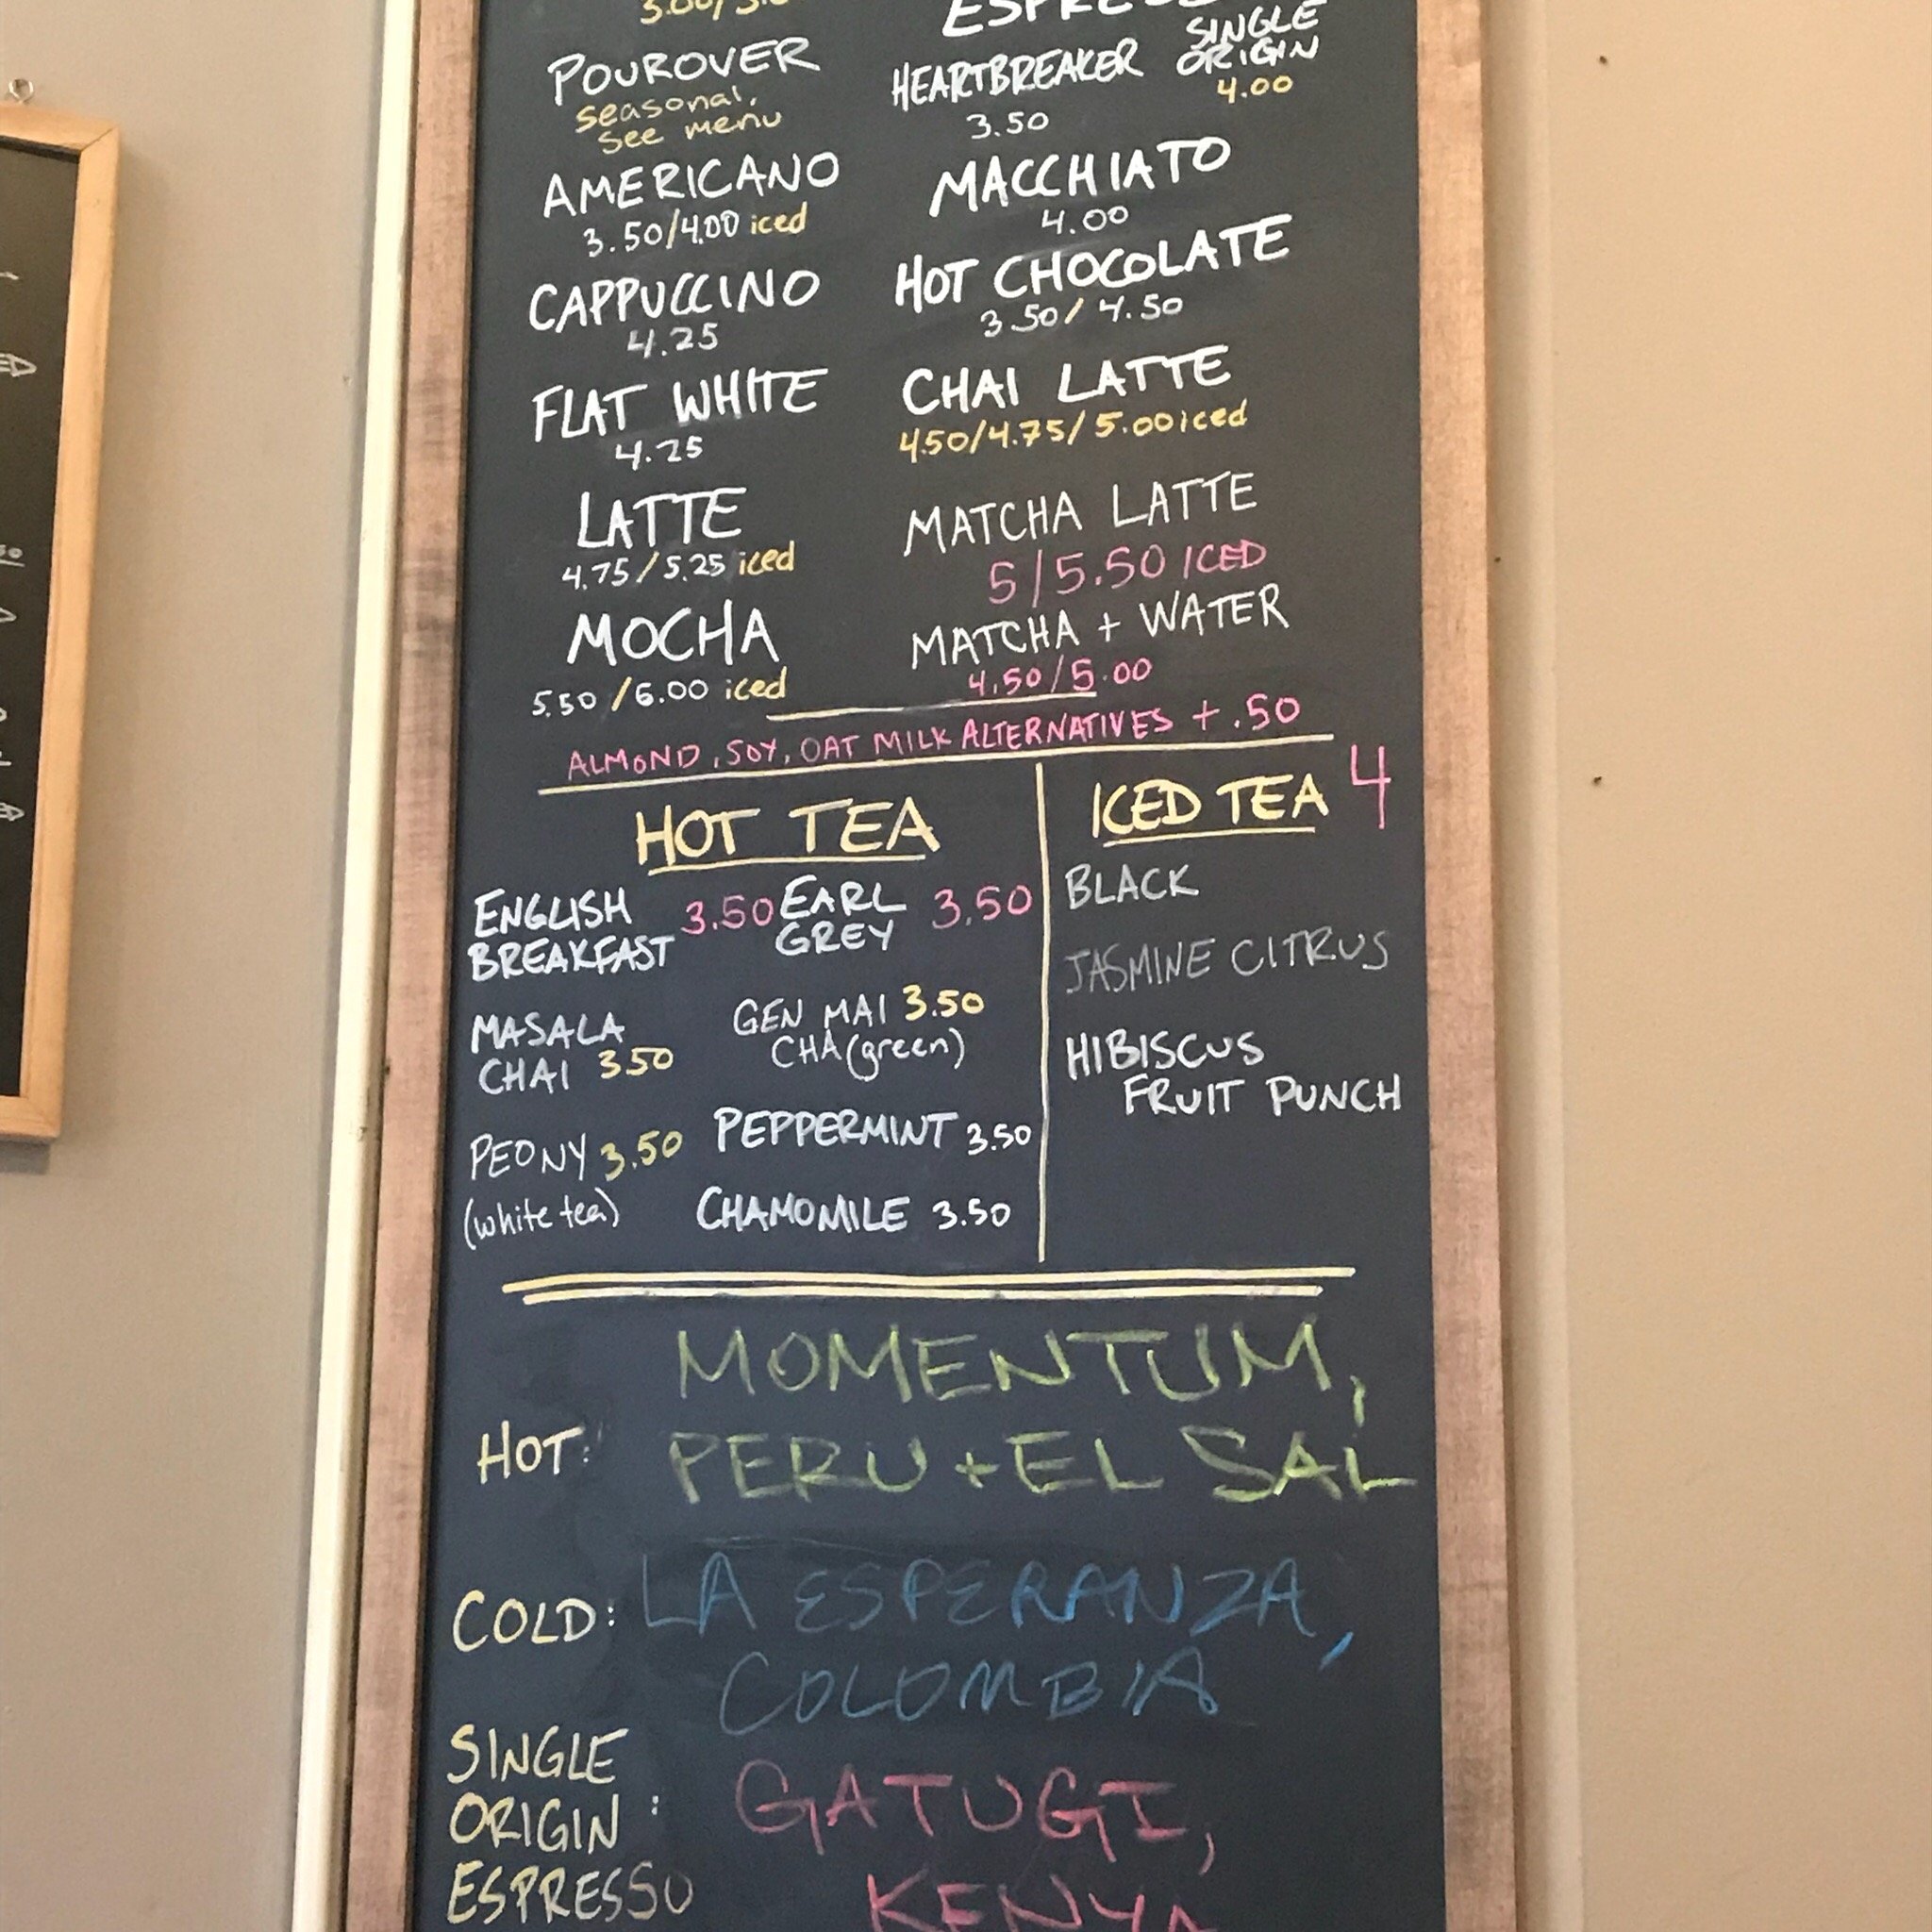 POUROVER
seasonal,
see menu
AMERICANO
3.50/4.00 iced
CAPPUCCINO
4.25
FLAT WHITE
4.25
LATTE
4.75/5.25 iced
MOCHA
5.50/6.00 iced
HEARTBREAKER
3.50
SINGLE
ORIGIN
4.00
MACCHIATO
4.00
HOT CHOCOLATE
3.50/4.50
CHAI LATTE
4.50/4.75/5.00 iced
MATCHA LATTE
5/5.50 ICED
MATCHA + WATER
4.50/5.00
ALMOND, SOY, OAT MILK ALTERNATIVES + .50
HOT TEA
ENGLISH 3.50
BREAKFAST
EARL 3.50
GREY
MASALA
CHAI 3.50
GEN MAI 3.50
CHA (green)
PEONY 3.50
(white tea)
PEPPERMINT 3.50
CHAMOMILE 3.50
ICED TEA 4
BLACK
JASMINE CITRUS
HIBISCUS
FRUIT PUNCH
HOT: MOMENTUM,
PERU + EL SAL
COLD: LA ESPERANZA,
COLOMBIA
SINGLE
ORIGIN :
ESPRESSO
GATUGI,
KENYA